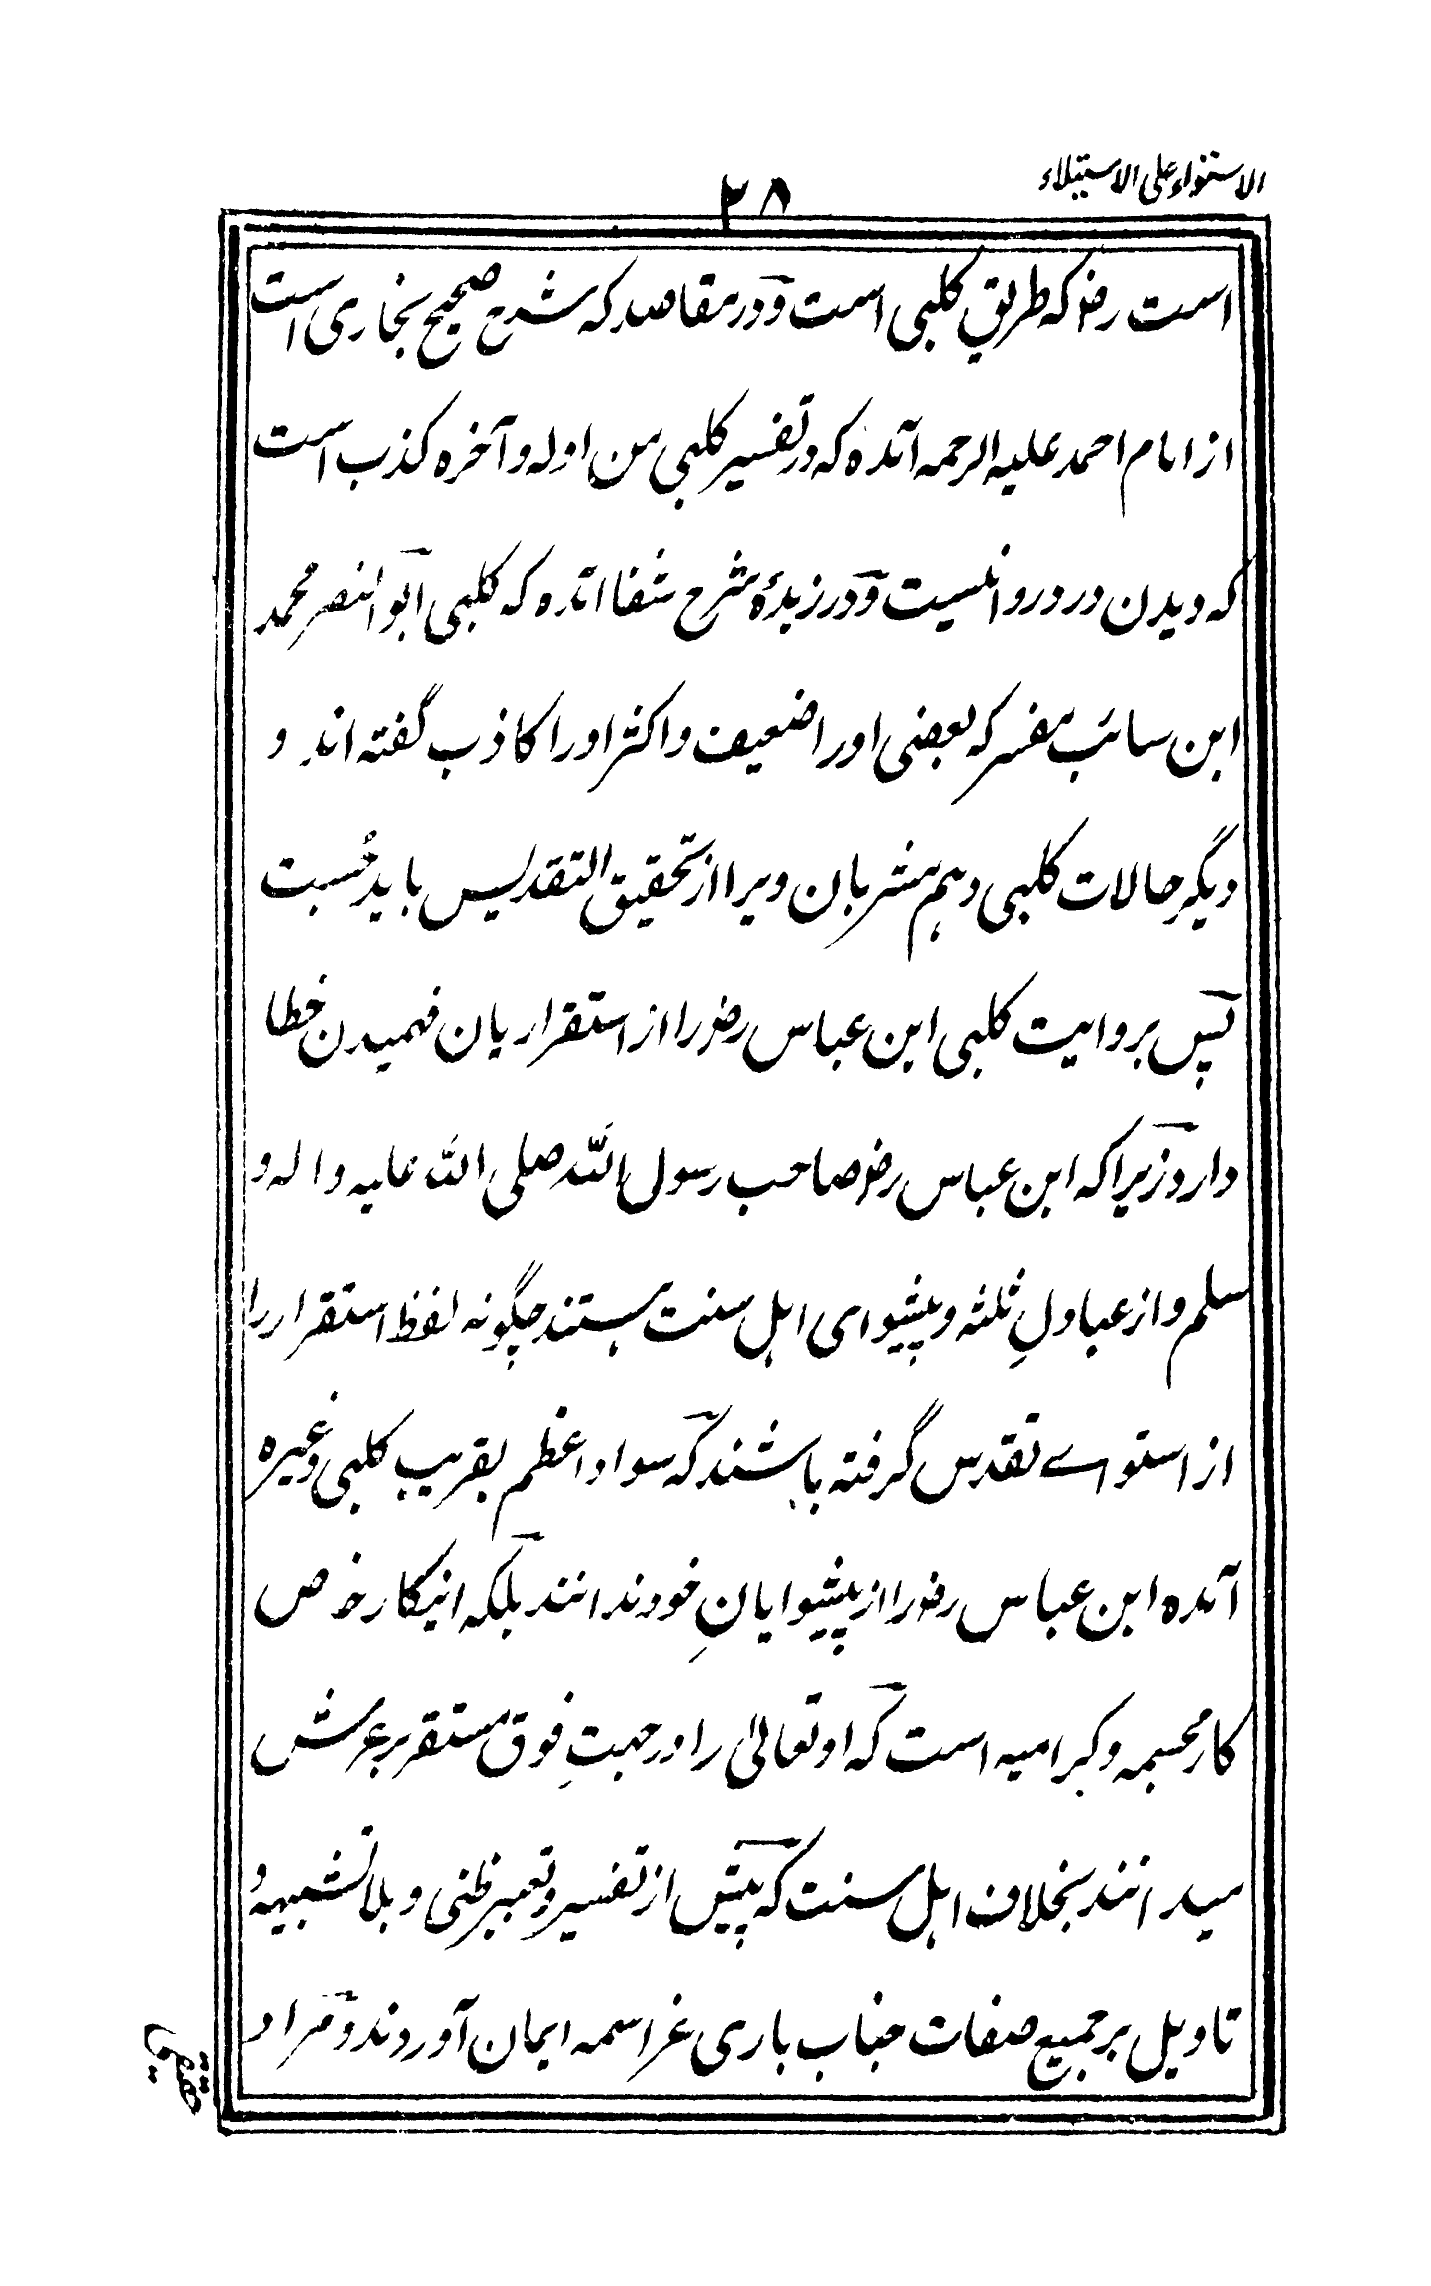 الاستواء علی الاستیلاء
۲۸
است رضؓ که طریق کلبی است و در مقاصد که شرح صحیح بخاری است
از امام احمد علیه الرحمه آمده که در تفسیر کلبی من اوله و آخره کذب است
که دیدن در و روا نیست و در زبدۀ شرح شفا آمده که کلبی ابو النصر محمد
ابن سائب مفسر که بعضی او را ضعیف و اکثر او را کاذب گفته اند و
دیگر حالات کلبی و هم مشربان ویرا از تحقیق التقدیس باید جست
پس بروایت کلبی ابن عباس رضؓ را از استقراریان فهمیدن خطا
دارد زیرا که ابن عباس رضؓ صاحب رسول الله صلی الله علیه و اله و
سلم و از عبادلِ ثلثه و پیشوای اهل سنت هستند چگونه لفظ استقرار را
از استواے تقدس گرفته باشند که سواد اعظم بقریب کلبی وغیره
آمده ابن عباس رضؓ را از پیشوایانِ خود ندانند بلکه اینکار خاص
کار مجسمه و کرامیه است که او تعالیٰ را در جهتِ فوق مستقر بر عرش
میدانند بخلاف اهل سنت که پیش از تفسیر و تعبیر ظنی و بلا تشبیه و
تاویل بر جمیع صفات جناب باری عز اسمه ایمان آوردند و مراد
حقیقی